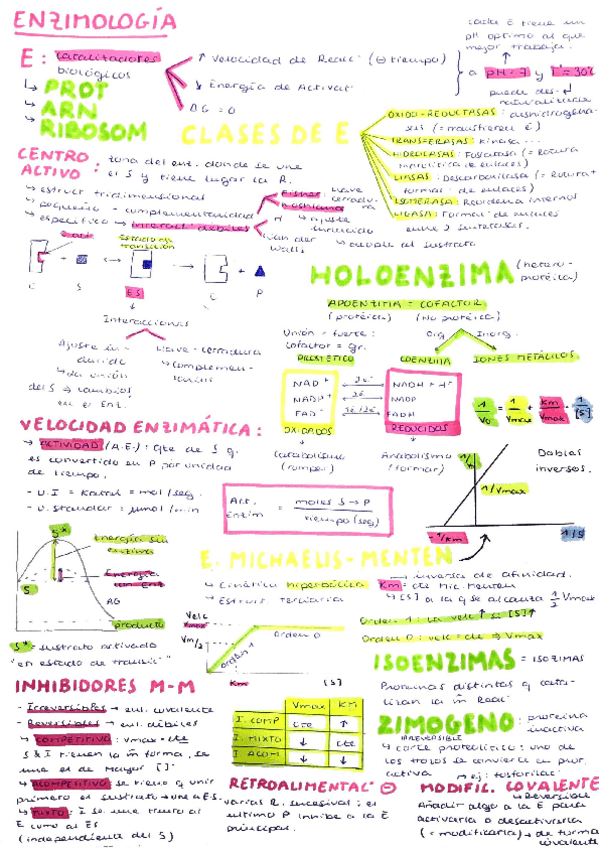 ENZIMOLOGÍA
E: catalizadores biológicos
↳ PROT
↳ ARN
↳ RIBOSOM
↑ Velocidad de Reacc (⊖ tiempo)
↓ Energía de Activac
ΔG = 0
cada E tiene un
pH optimo al que
mejor trabaja.
a pH = 7 y Tª = 30ºC
CLASES DE E
OXIDO-REDUCTASAS:
(= transfieren é)
TRANSFERASAS: Kinasa...
HIDROLASAS: Fosfatasa (= Rotura
LIASAS: Descarboxilasa (= Rotura +
formac de enlaces)
ISOMERASA: Reordena interno
LIGASA: Formac de enlaces
entre 2 sustratos.
CENTRO
ACTIVO: zona del enz. donde se une
el S y tiene lugar la R.
↳ estruct tridimensional
↳ pequeño - complementariedad
↳ especifico → Interacc débiles
Fisher: llave cerradura
Koshland:
↳ ajuste inducido
Van der Walls
↳ acople al sustrato
Estado de transición
E S ES E P
Interacciones
Ajuste inducido
↳ la unión
del S → cambios
en el Enz.
Llave-cerradura
↳ complementarios
HOLOENZIMA (heteroproteica)
APOENZIMA = COFACTOR
(proteica) (No proteica)
Unión fuerte:
cofactor = gr.
PROSTETICO
Org Inorg.
COENZIMA IONES METÁLICOS
NAD⁺ 2é NADH + H⁺
NADP⁺ 2é NADP
FAD 1é/2é FADH
OXIDADOS REDUCIDOS
↳ Catabolismo
(romper)
↳ Anabolismo
(formar)
1/Vo = 1/Vmax + Km/Vmax · 1/[S]
1/Vo
Dobles
inversos.
1/Vmax
-1/Km
1/S
VELOCIDAD ENZIMÁTICA:
↳ ACTIVIDAD (A.E.): qte de S q
es convertido en P por unidad
de tiempo.
- U.I = Katal = mol/seg.
- U. standar = μmol/min
Act. enzim = moles S → P / tiempo (seg)
S*
Energía sin
enzima
Energía
con Enz
S
ΔG
producto
S* = sustrato activado
"en estado de transic"
E. MICHAELIS-MENTEN
↳ Cinética hiperbólica
↳ Estruc. terciaria
Km: cte Mic Menten
→ inversa de afinidad.
↳ [S] a la q se alcanza ½ Vmax
Orden 1: La veloc ↑ si [S] ↑
Orden 0: veloc = cte → Vmax
Veloc
Vm/2
orden 1
Orden 0
Km [S]
ISOENZIMAS = ISOZIMAS
Proteinas distintas q cata-
lizan la m̄ Reac
INHIBIDORES M-M
- Irreversibles → enl. covalente
- Reversibles → enl. débiles
↳ COMPETITIVO: Vmax = cte
S & I tienen la m̄ forma, se
une el de mayor [ ].
↳ ACOMPETITIVO: se tiene q unir
primero el sustrato → une a ES.
↳ MIXTO: I se une tanto al
E como al ES
(independiente del S)
Vmax KM
I. COMP cte ↑
I. MIXTO ↓ cte
I. ACOM ↓ ↓
ZIMOGENO: proteina
inactiva
IRREVERSIBLE
↳ corte proteolítico: uno de
los trozos se convierte en prot.
activa
RETROALIMENTAC ⊖
varias R. sucesivas: el
ultimo P inhibe a la E
principal.
MODIFIC. COVALENTE
ej: fosforilac
↳ Reversible
Añadir algo a la E para
activarla o desactivarla
(= modificarla) → de forma
covalente